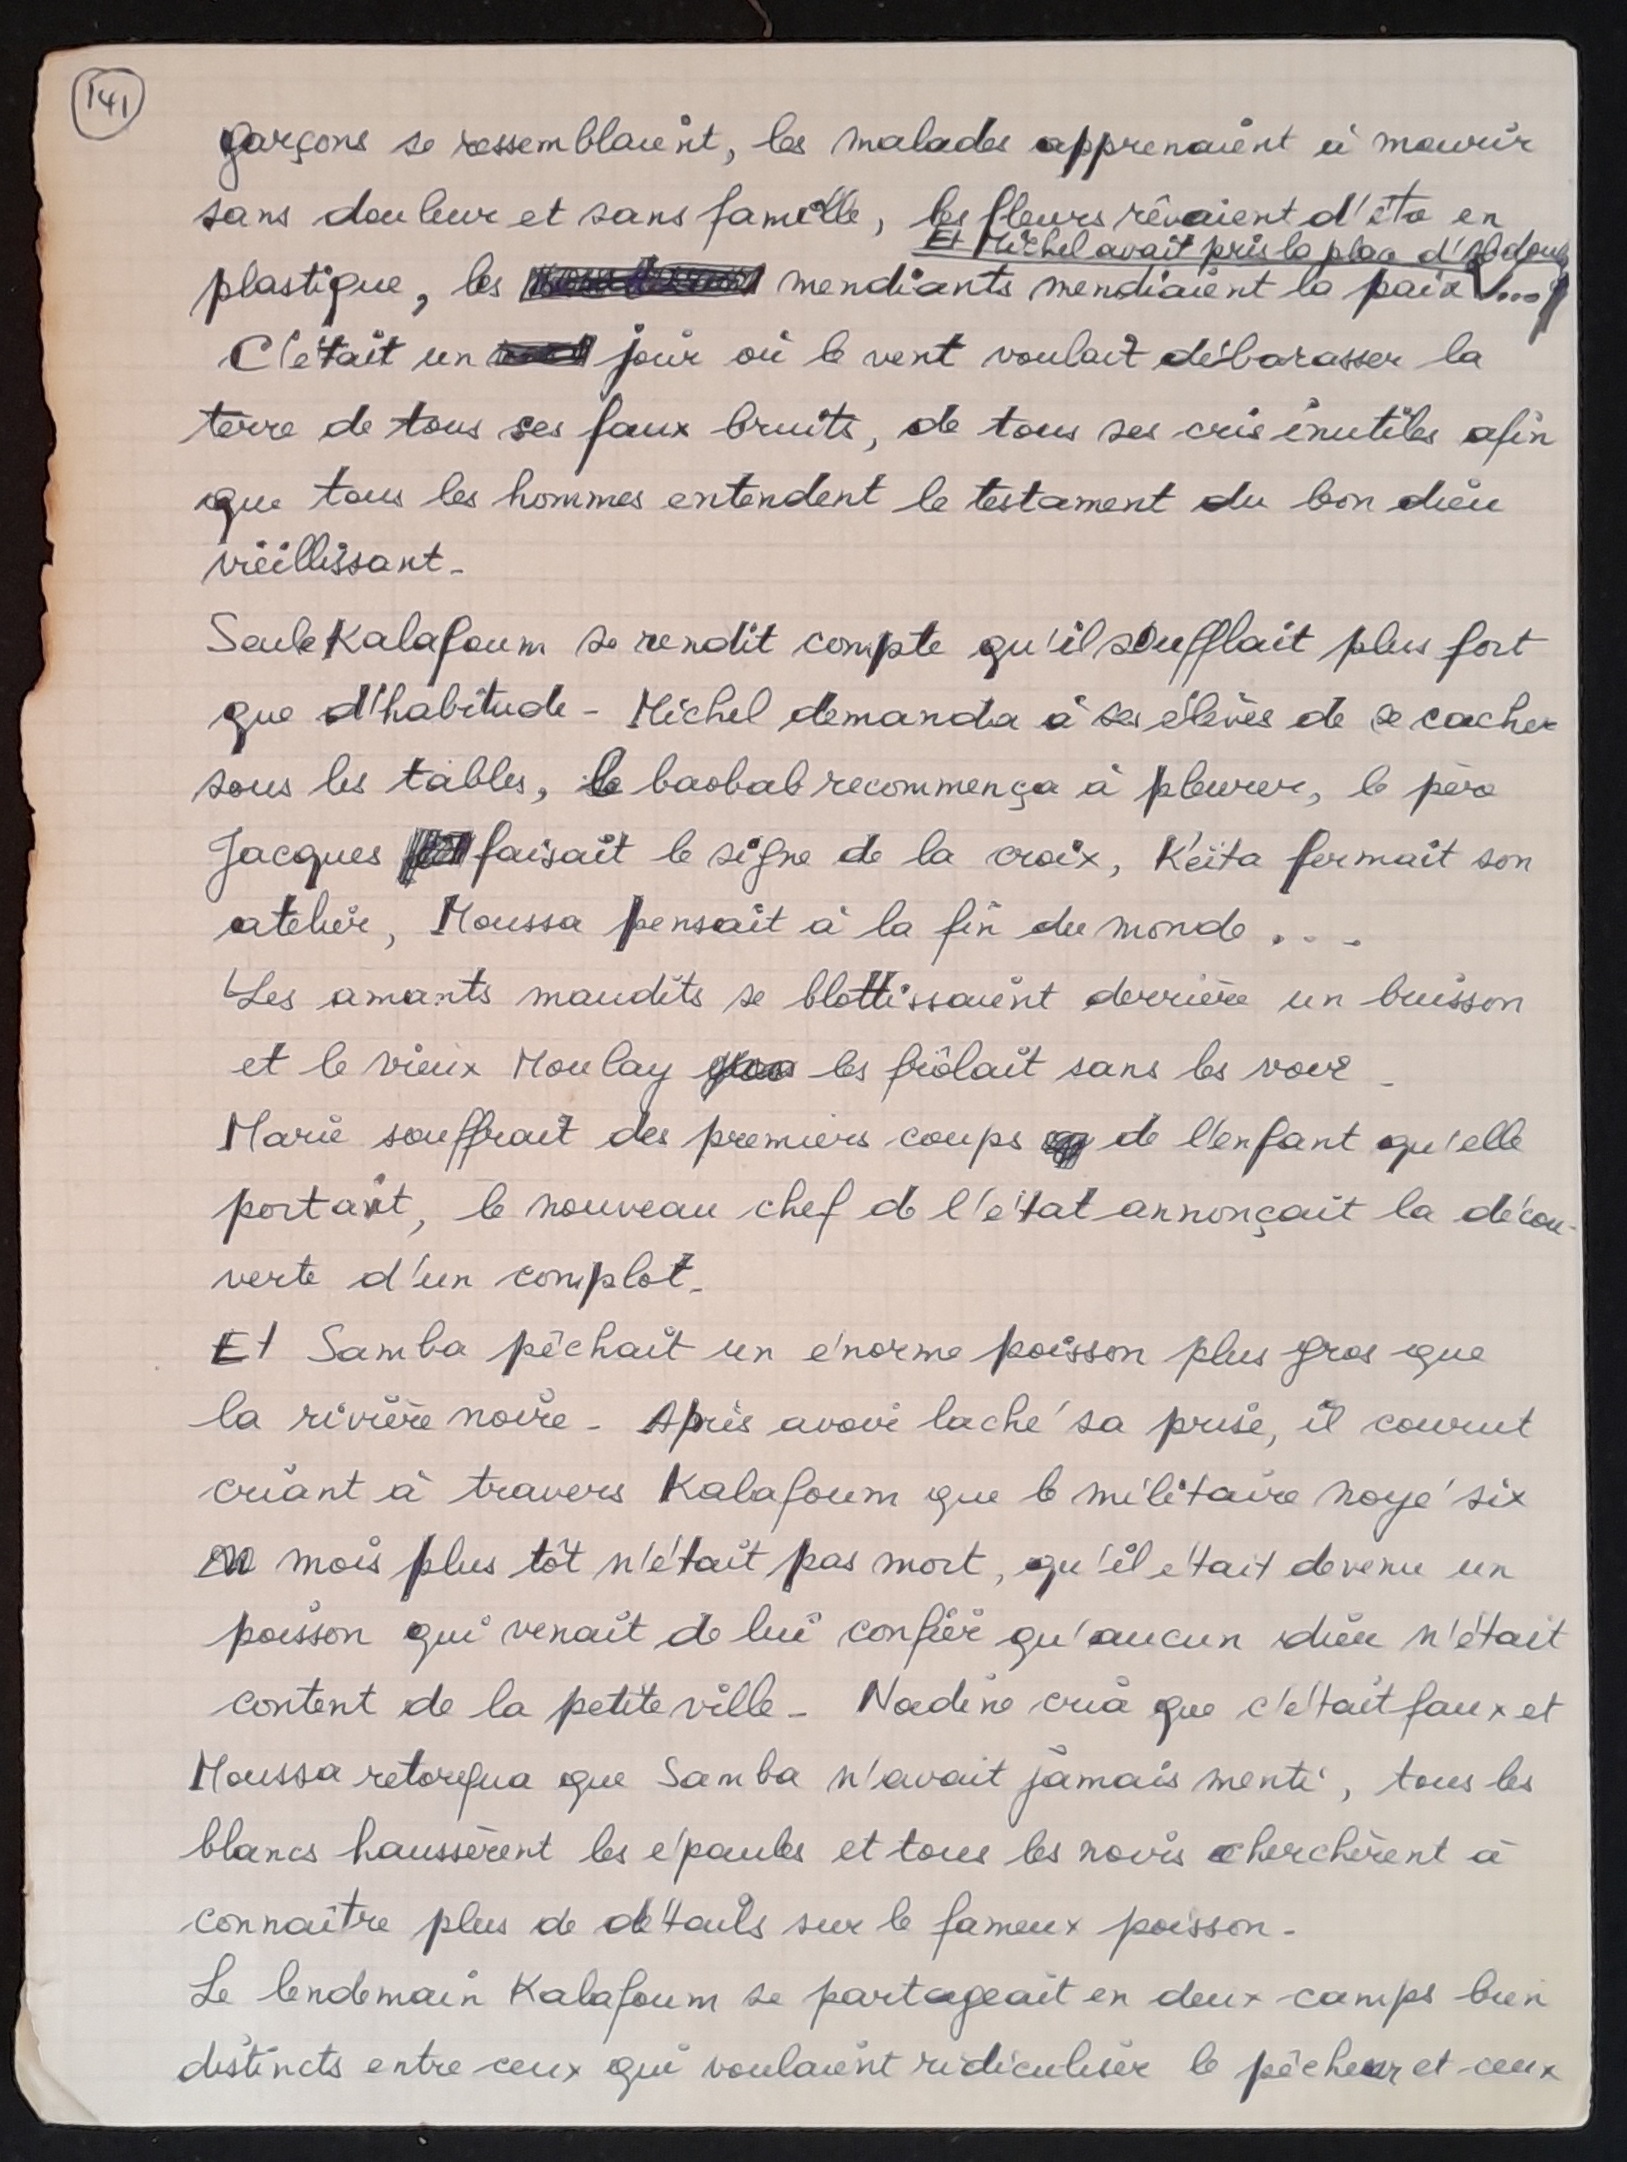 141
garçons se ressemblaient, les malades apprenaient à mourir
sans douleur et sans famille, les fleurs rêvaient d'être en
Et Michel avait pris la place d'Abdoul
plastique, les mendiants mendiaient la paix...
C'était un jour où le vent voulait débarasser la
terre de tous ses faux bruits, de tous ses cris inutiles afin
que tous les hommes entendent le testament du bon dieu
vieillissant -
Seule Kalafoum se rendit compte qu'il soufflait plus fort
que d'habitude - Michel demanda à ses élèves de se cacher
sous les tables, le baobab recommença à pleurer, le père
Jacques faisait le signe de la croix, Kéïta fermait son
atelier, Moussa pensait à la fin du monde . . .
Les amants maudits se blottissaient derrière un buisson
et le vieux Moulay les frôlait sans les voir -
Marie souffrait des premiers coups de l'enfant qu'elle
portait, le nouveau chef de l'état annonçait la décou-
verte d'un complot -
Et Samba pêchait un énorme poisson plus gros que
la rivière noire - Après avoir laché sa prise, il courut
criant à travers Kalafoum que le militaire noyé six
mois plus tôt n'était pas mort, qu'il était devenu un
poisson qui venait de lui confier qu'aucun dieu n'était
content de la petite ville - Nadine cria que c'était faux et
Moussa retorqua que Samba n'avait jamais menti, tous les
blancs haussèrent les épaules et tous les noirs cherchèrent à
connaître plus de détails sur le fameux poisson -
Le lendemain Kalafoum se partageait en deux camps bien
distincts entre ceux qui voulaient ridiculiser le pêcheur et ceux